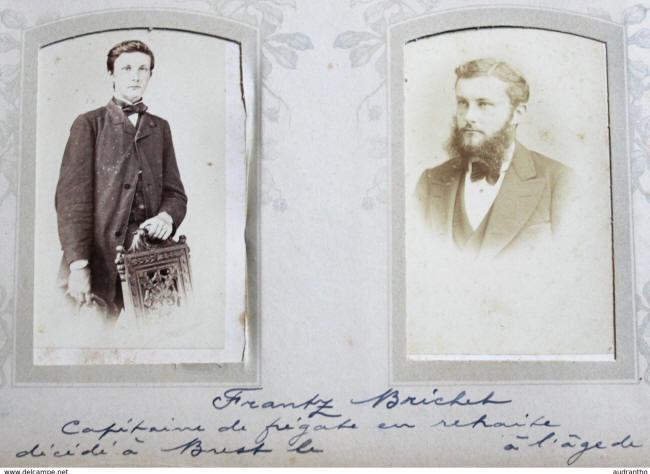 Frantz Brichet
Capitaine de frégate en retraite
décédé à Brest le à l'âge de
www.delcampe.net
audrantho